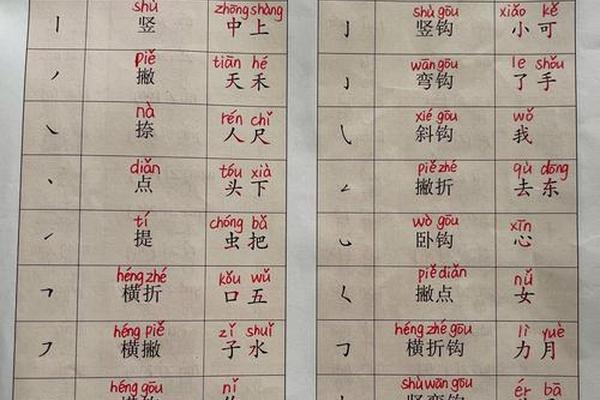 shù zhōng shàng
丨 竖 中 上
piě tiān hé
丿 撇 天 禾
nà rén chǐ
㇏ 捺 人 尺
diǎn tóu xià
丶 点 头 下
tí chóng bǎ
㇀ 提 虫 把
héng zhé kǒu wǔ
𠃍 横折 口 五
héng piě zǐ shuǐ
㇇ 横撇 子 水
héng gōu nǐ
shù gōu xiǎo kě
亅 竖钩 小 可
wān gōu le shǒu
㇁ 弯钩 了 手
xié gōu wǒ
㇂ 斜钩 我
piě zhé qù dōng
㇜ 撇折 去 东
wò gōu xīn
㇃ 卧钩 心
piě diǎn nǚ
㇛ 撇点 女
héng zhé gōu lì yuè
㇆ 横折钩 力 月
shù wān gōu ér bā